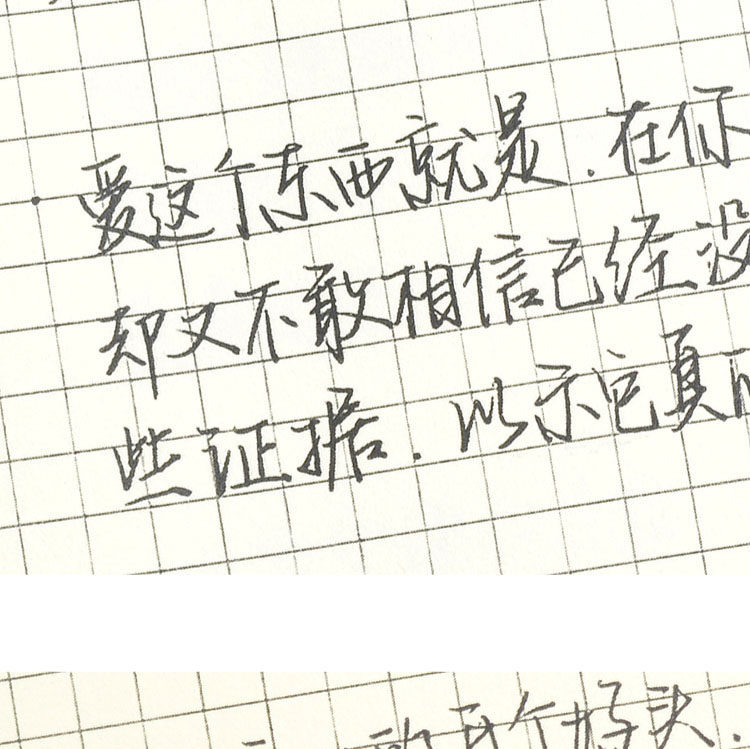 爱这个东西就是.在你
却又不敢相信已经没
些证据.以示它真
个好头.